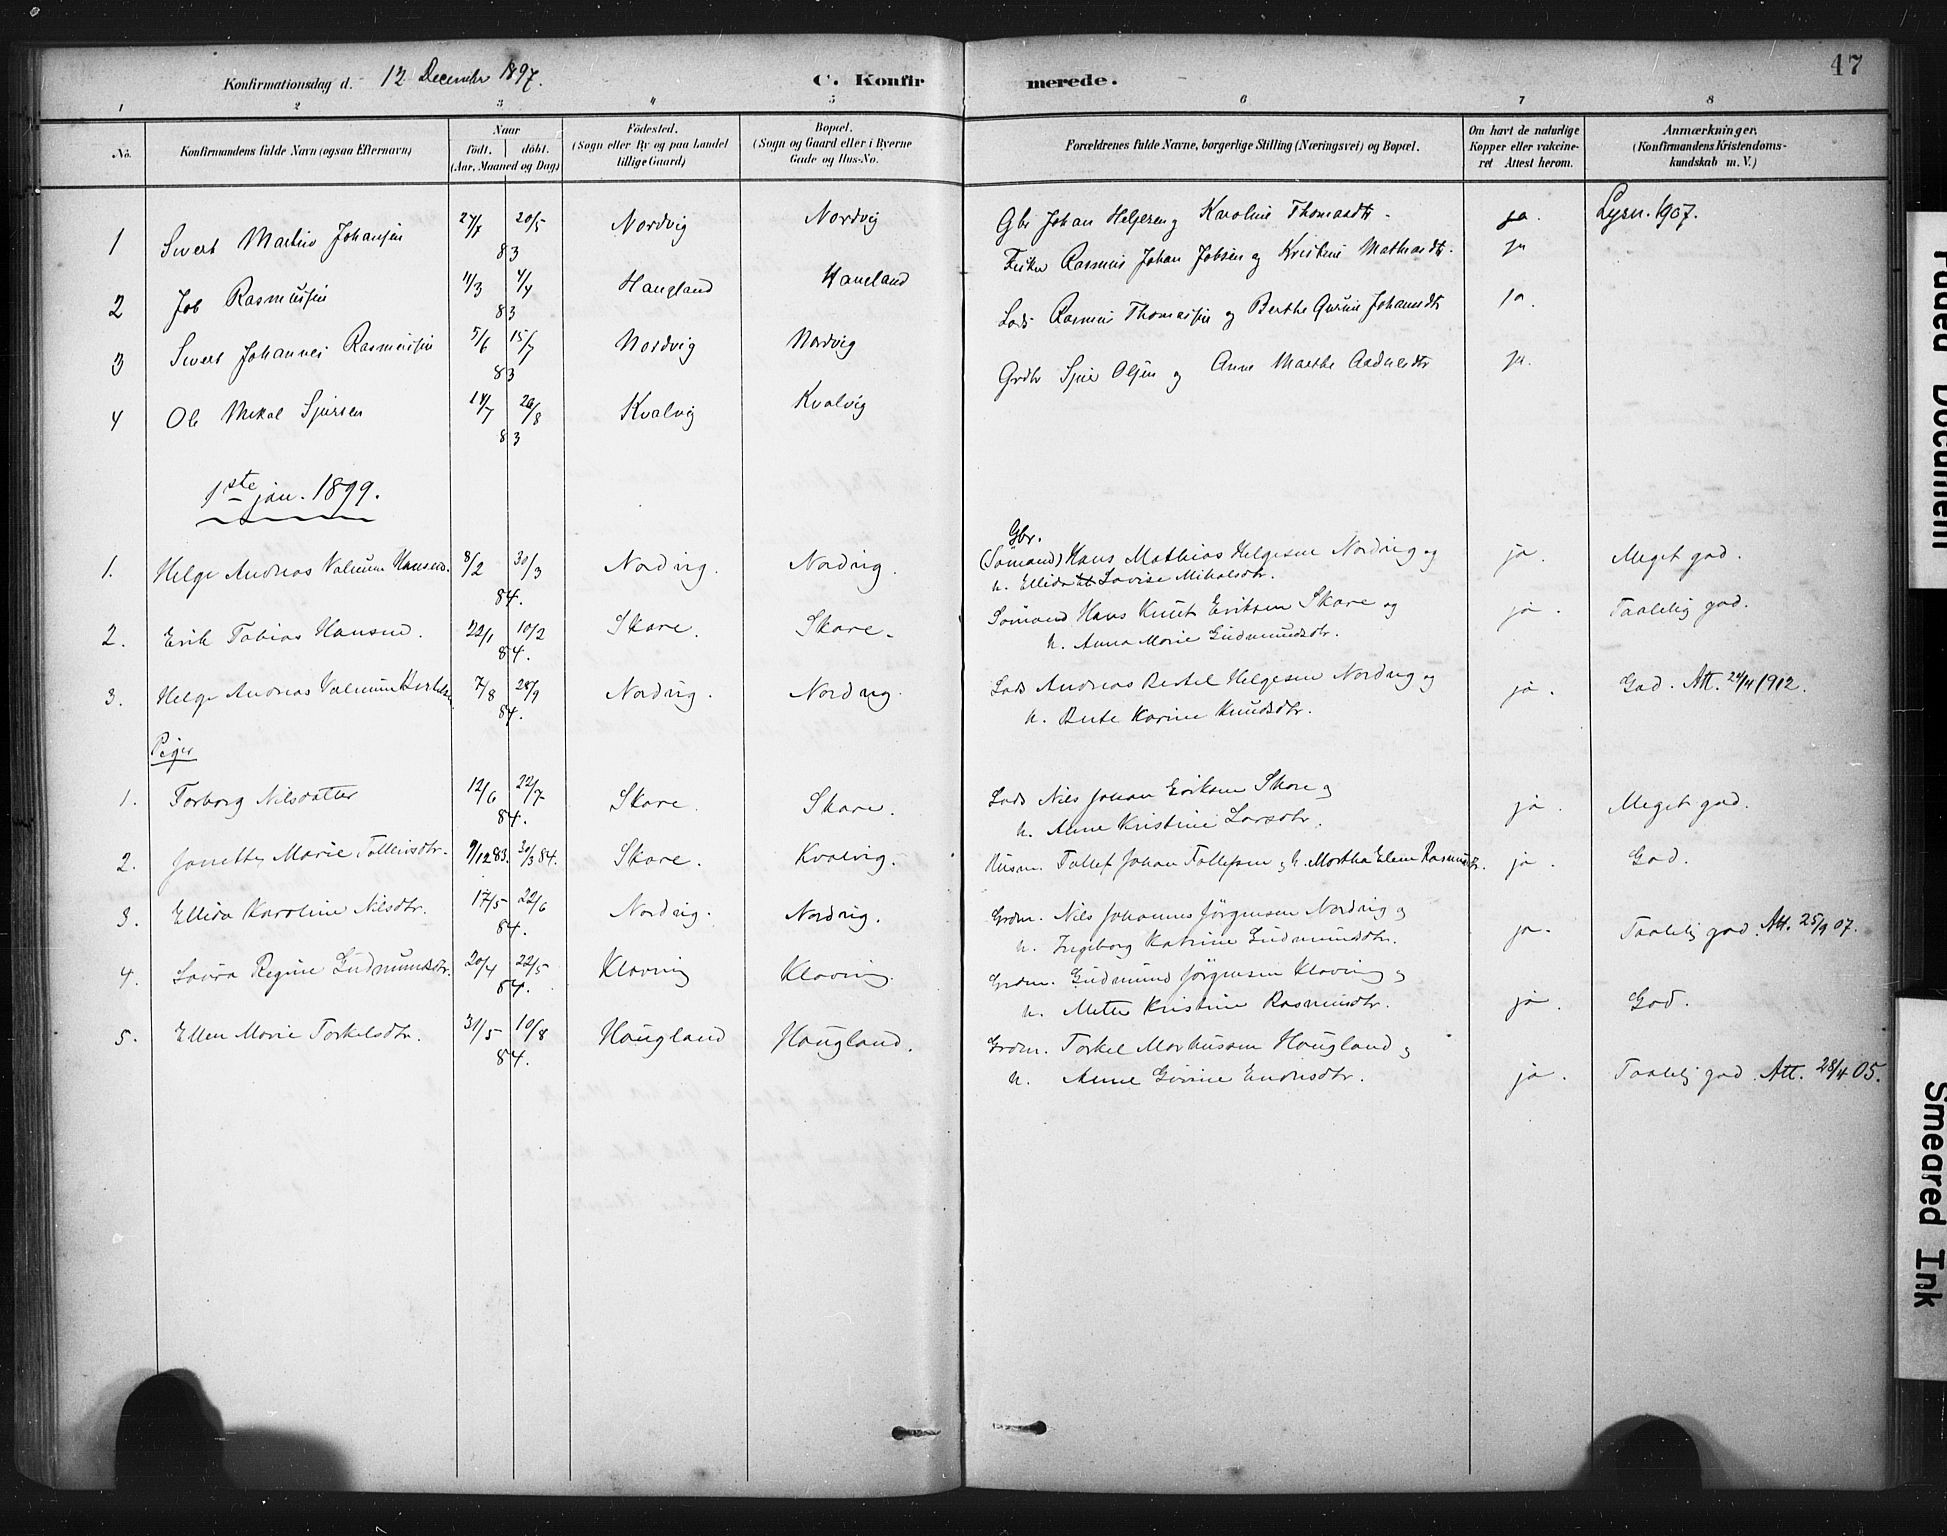 Konfirmationsdag d. 12 December 1897. C. Konfirmerede. 47
1 2 3 4 5 6 7 8
No. Konfirmandens fulde Navn (ogsaa Efternavn) Naar födt. döbt. (Aar, Maaned og Dag) Födested. (Sogn eller By og paa Landet tillige Gaard) Bopæl. (Sogn og Gaard eller i Byerne Gade og Hus-No. Forældrenes fulde Navne, borgerlige Stilling (Næringsvei) og Bopæl. Om havt de naturlige Kopper eller vakcineret Attest herom. Anmærkninger. (Konfirmandens Kristendomskundskab m. V.)
1 Sivert Martin Johansen 24/7 20/5 83 Nordvig Nordvig Gbr Johan Helgesen og Karoline Thomasdtr. ja. Lysn. 1907.
2 Job Rasmussen 11/3 4/4 83 Haugland Haugland Fisker Rasmus Johan Jobsen og Kristine Mathiasdtr. ja
3 Sivert Johannes Rasmussen 5/6 15/7 83 Nordvig Nordvig Lods Rasmus Thomassen og Berthe Gurine Johansdtr ja.
4 Ole Mikal Sjursen 14/7 26/8 83 Kvalvig Kvalvig Grdbr Sjur Olsen og Anne Marthe Aadnesdtr ja.
1ste jan. 1899.
1. Helge Andreas Valnum Hansen. 8/2 30/3 84. Nordvig. Nordvig. Gbr. (Sømand) Hans Mathias Helgesen Nordvig og ja. Meget god.
h. Ellida Lovise Mikalsdtr.
2. Erik Tobias Hansen. 22/1 10/2 84. Skare. Skare. Sømand Hans Knut Eriksen Skare og ja. Taalelig god.
h. Anna Marie Gudmundsdtr.
3. Helge Andreas Valnum Bertelsen 7/8 28/9 84. Nordvig. Nordvig. Lods Andreas Bertel Helgesen Nordvig og ja. God. Att. 24/4 1912.
h. Berte Karine Knudsdtr.
Piger
1. Torborg Nilsdatter 12/6 22/7 84. Skare. Skare. Lods Nils Johan Eriksen Skare og ja. Meget god.
h. Anne Kristine Larsdtr.
2. Janette Marie Tollevsdtr. 9/12 83. 30/3 84. Skare. Kvalvig. Husm. Tollef Johan Tollefsen og h. Martha Elene Rasmusdtr. ja. God.
3. Ellida Karoline Nilsdtr. 17/5 22/6 84. Nordvig. Nordvig. Grdm. Nils Johannes Jörgensen Nordvig og
h. Ingeborg Katrine Gudmundsdtr. ja. Taalelig god. Att. 25/9 07.
4. Laura Regine Gudmundsdtr. 20/4 22/5 84. Klovning Klovning. Grdm. Gudmund Jörgensen Klovning og
h. Mette Kristine Rasmusdtr. ja. God.
5. Ellen Marie Torkelsdtr. 31/5 10/8 84. Haugland Haugland. Grdm. Torkel Markussen Haugland og
h. Anne Gurine Endresdtr. ja. Taalelig god. Att. 28/4 05.
Faded Document
Smeared Ink